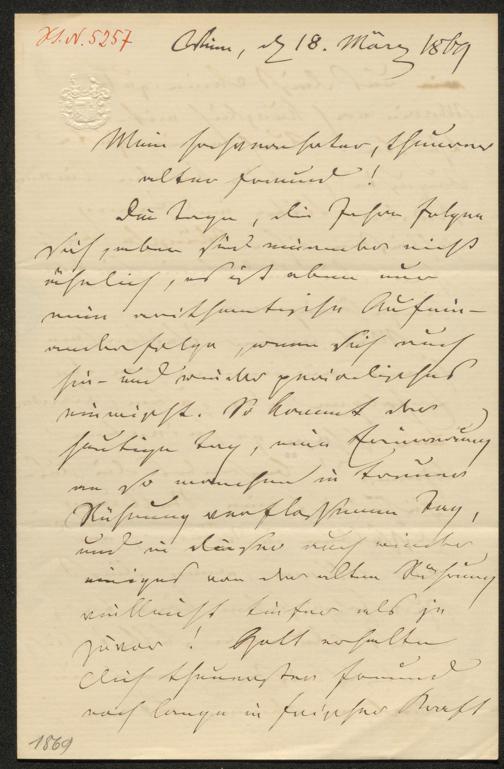 H.I.N. 5257
Wien, d 18. März 1869
Mein hochverehrter, theurer
alter Freund!
Die Tage, die Jahre folgen
sich, aber sind einander nicht
ähnlich, es ist eben nur
eine arithmetische Aufein-
anderfolge, wenn sich auch
hin- und wieder periodisches
einmischt. So kommt der
heutige Tag, eine Erinnerung
an so manchen in treuer
Rührung verflossenen Tag,
und in dieser auch wieder
einiges von der alten Rührung
vielleicht tiefer als je
zuvor! Gott erhalte
Dich theuerster Freund
noch lange in frischer Kraft
1869